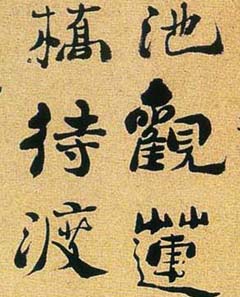 池觀蓮
橋待渡